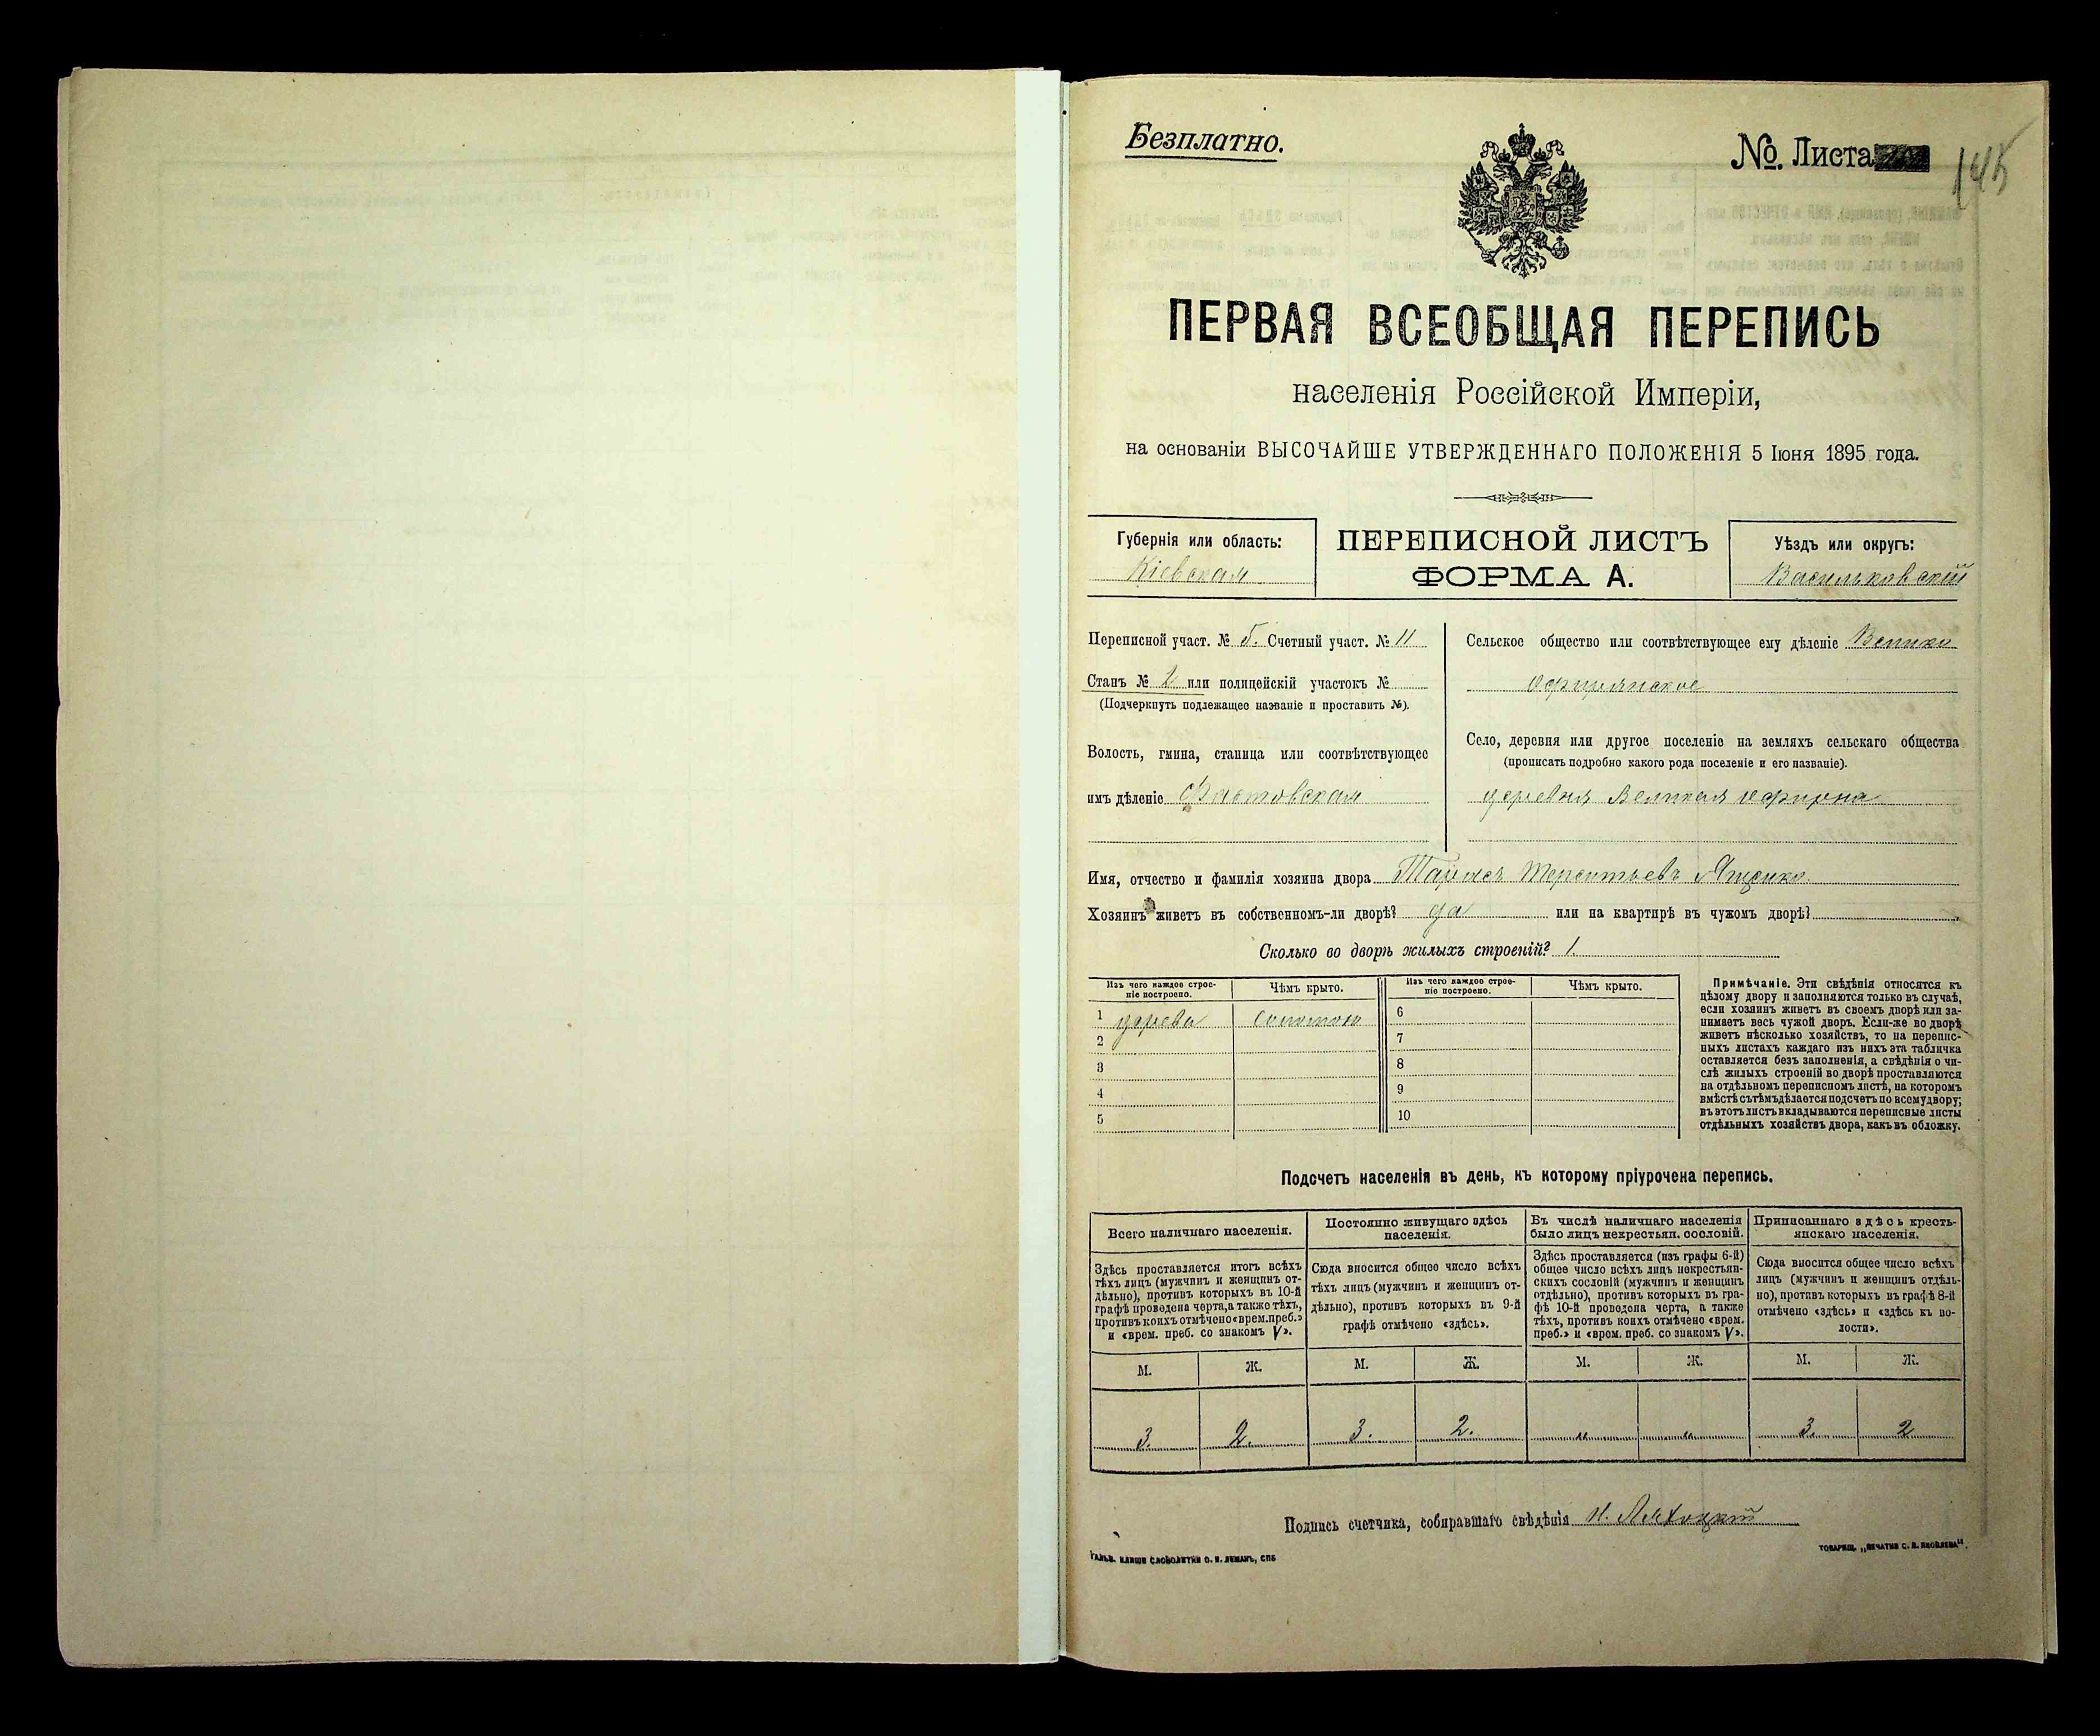 Безплатно.
№. Листа
145
ПЕРВАЯ ВСЕОБЩАЯ ПЕРЕПИСЬ
населенія Россійской Имперіи,
на основаніи ВЫСОЧАЙШЕ УТВЕРЖДЕННАГО ПОЛОЖЕНІЯ 5 Іюня 1895 года.
Губернія или область:
Кіевская
ПЕРЕПИСНОЙ ЛИСТЪ
ФОРМА А.
Уѣздъ или округъ:
Васильковскій
Переписной участ. № 5. Счетный участ. № 11
Станъ № 2 или полицейскій участокъ №
(Подчеркнуть подлежащее названіе и проставить №).
Волость, гмина, станица или соотвѣтствующее
имъ дѣленіе Фастовская
Сельское общество или соотвѣтствующее ему дѣленіе Велико
офирнянское
Село, деревня или другое поселеніе на земляхъ сельскаго общества
(прописать подробно какого рода поселеніе и его названіе).
деревня Великая офирна
Имя, отчество и фамилія хозяина двора Тарасъ Терентьевъ Ященко
Хозяинъ живетъ въ собственномъ-ли дворѣ? да или на квартирѣ въ чужомъ дворѣ?
Сколько во дворѣ жилыхъ строеній? 1.
Изъ чего каждое строе-
ніе построено.
Чѣмъ крыто.
Изъ чего каждое строе-
ніе построено.
Чѣмъ крыто.
1 дерева соломою 6
2 7
3 8
4 9
5 10
Примѣчаніе. Эти свѣдѣнія относятся къ
цѣлому двору и заполняются только въ случаѣ,
если хозяинъ живетъ въ своемъ дворѣ или за-
нимаетъ весь чужой дворъ. Если-же во дворѣ
живетъ нѣсколько хозяйствъ, то на перепис-
ныхъ листахъ каждаго изъ нихъ эта табличка
оставляется безъ заполненія, а свѣдѣнія о чи-
слѣ жилыхъ строеній во дворѣ проставляются
на отдѣльномъ переписномъ листѣ, на которомъ
вмѣстѣ съ тѣмъ дѣлается подсчетъ по всему двору;
въ этотъ листъ вкладываются переписные листы
отдѣльныхъ хозяйствъ двора, какъ въ обложку.
Подсчетъ населенія въ день, къ которому пріурочена перепись.
Всего наличнаго населенія.
Здѣсь проставляется итогъ всѣхъ
тѣхъ лицъ (мужчинъ и женщинъ от-
дѣльно), противъ которыхъ въ 10-й
графѣ проведена черта, а также тѣхъ,
противъ коихъ отмѣчено «врем. преб.»
и «врем. преб. со знакомъ V».
Постоянно живущаго здѣсь
населенія.
Сюда вносится общее число всѣхъ
тѣхъ лицъ (мужчинъ и женщинъ от-
дѣльно), противъ которыхъ въ 9-й
графѣ отмѣчено «здѣсь».
Въ числѣ наличнаго населенія
было лицъ некрестьян. сословій.
Здѣсь проставляется (изъ графы 6-й)
общее число всѣхъ лицъ некрестьян-
скихъ сословій (мужчинъ и женщинъ
отдѣльно), противъ которыхъ въ гра-
фѣ 10-й проведена черта, а также
тѣхъ, противъ коихъ отмѣчено «врем.
преб.» и «врем. преб. со знакомъ V».
Приписаннаго здѣсь кресть-
янскаго населенія.
Сюда вносится общее число всѣхъ
лицъ (мужчинъ и женщинъ отдѣль-
но), противъ которыхъ въ графѣ 8-й
отмѣчено «здѣсь» и «здѣсь къ во-
лости».
М. Ж. М. Ж. М. Ж. М. Ж.
3. 2. 3. 2. „ „ 3. 2
Подпись счетчика, собиравшаго свѣдѣнія
ГАЛЬВ. КЛИШЕ СЛОВОЛИТНИ О. И. ЛЕМАНЪ, СПБ
ТОВАРИЩ. „ПЕЧАТНЯ С. П. ЯКОВЛЕВА".